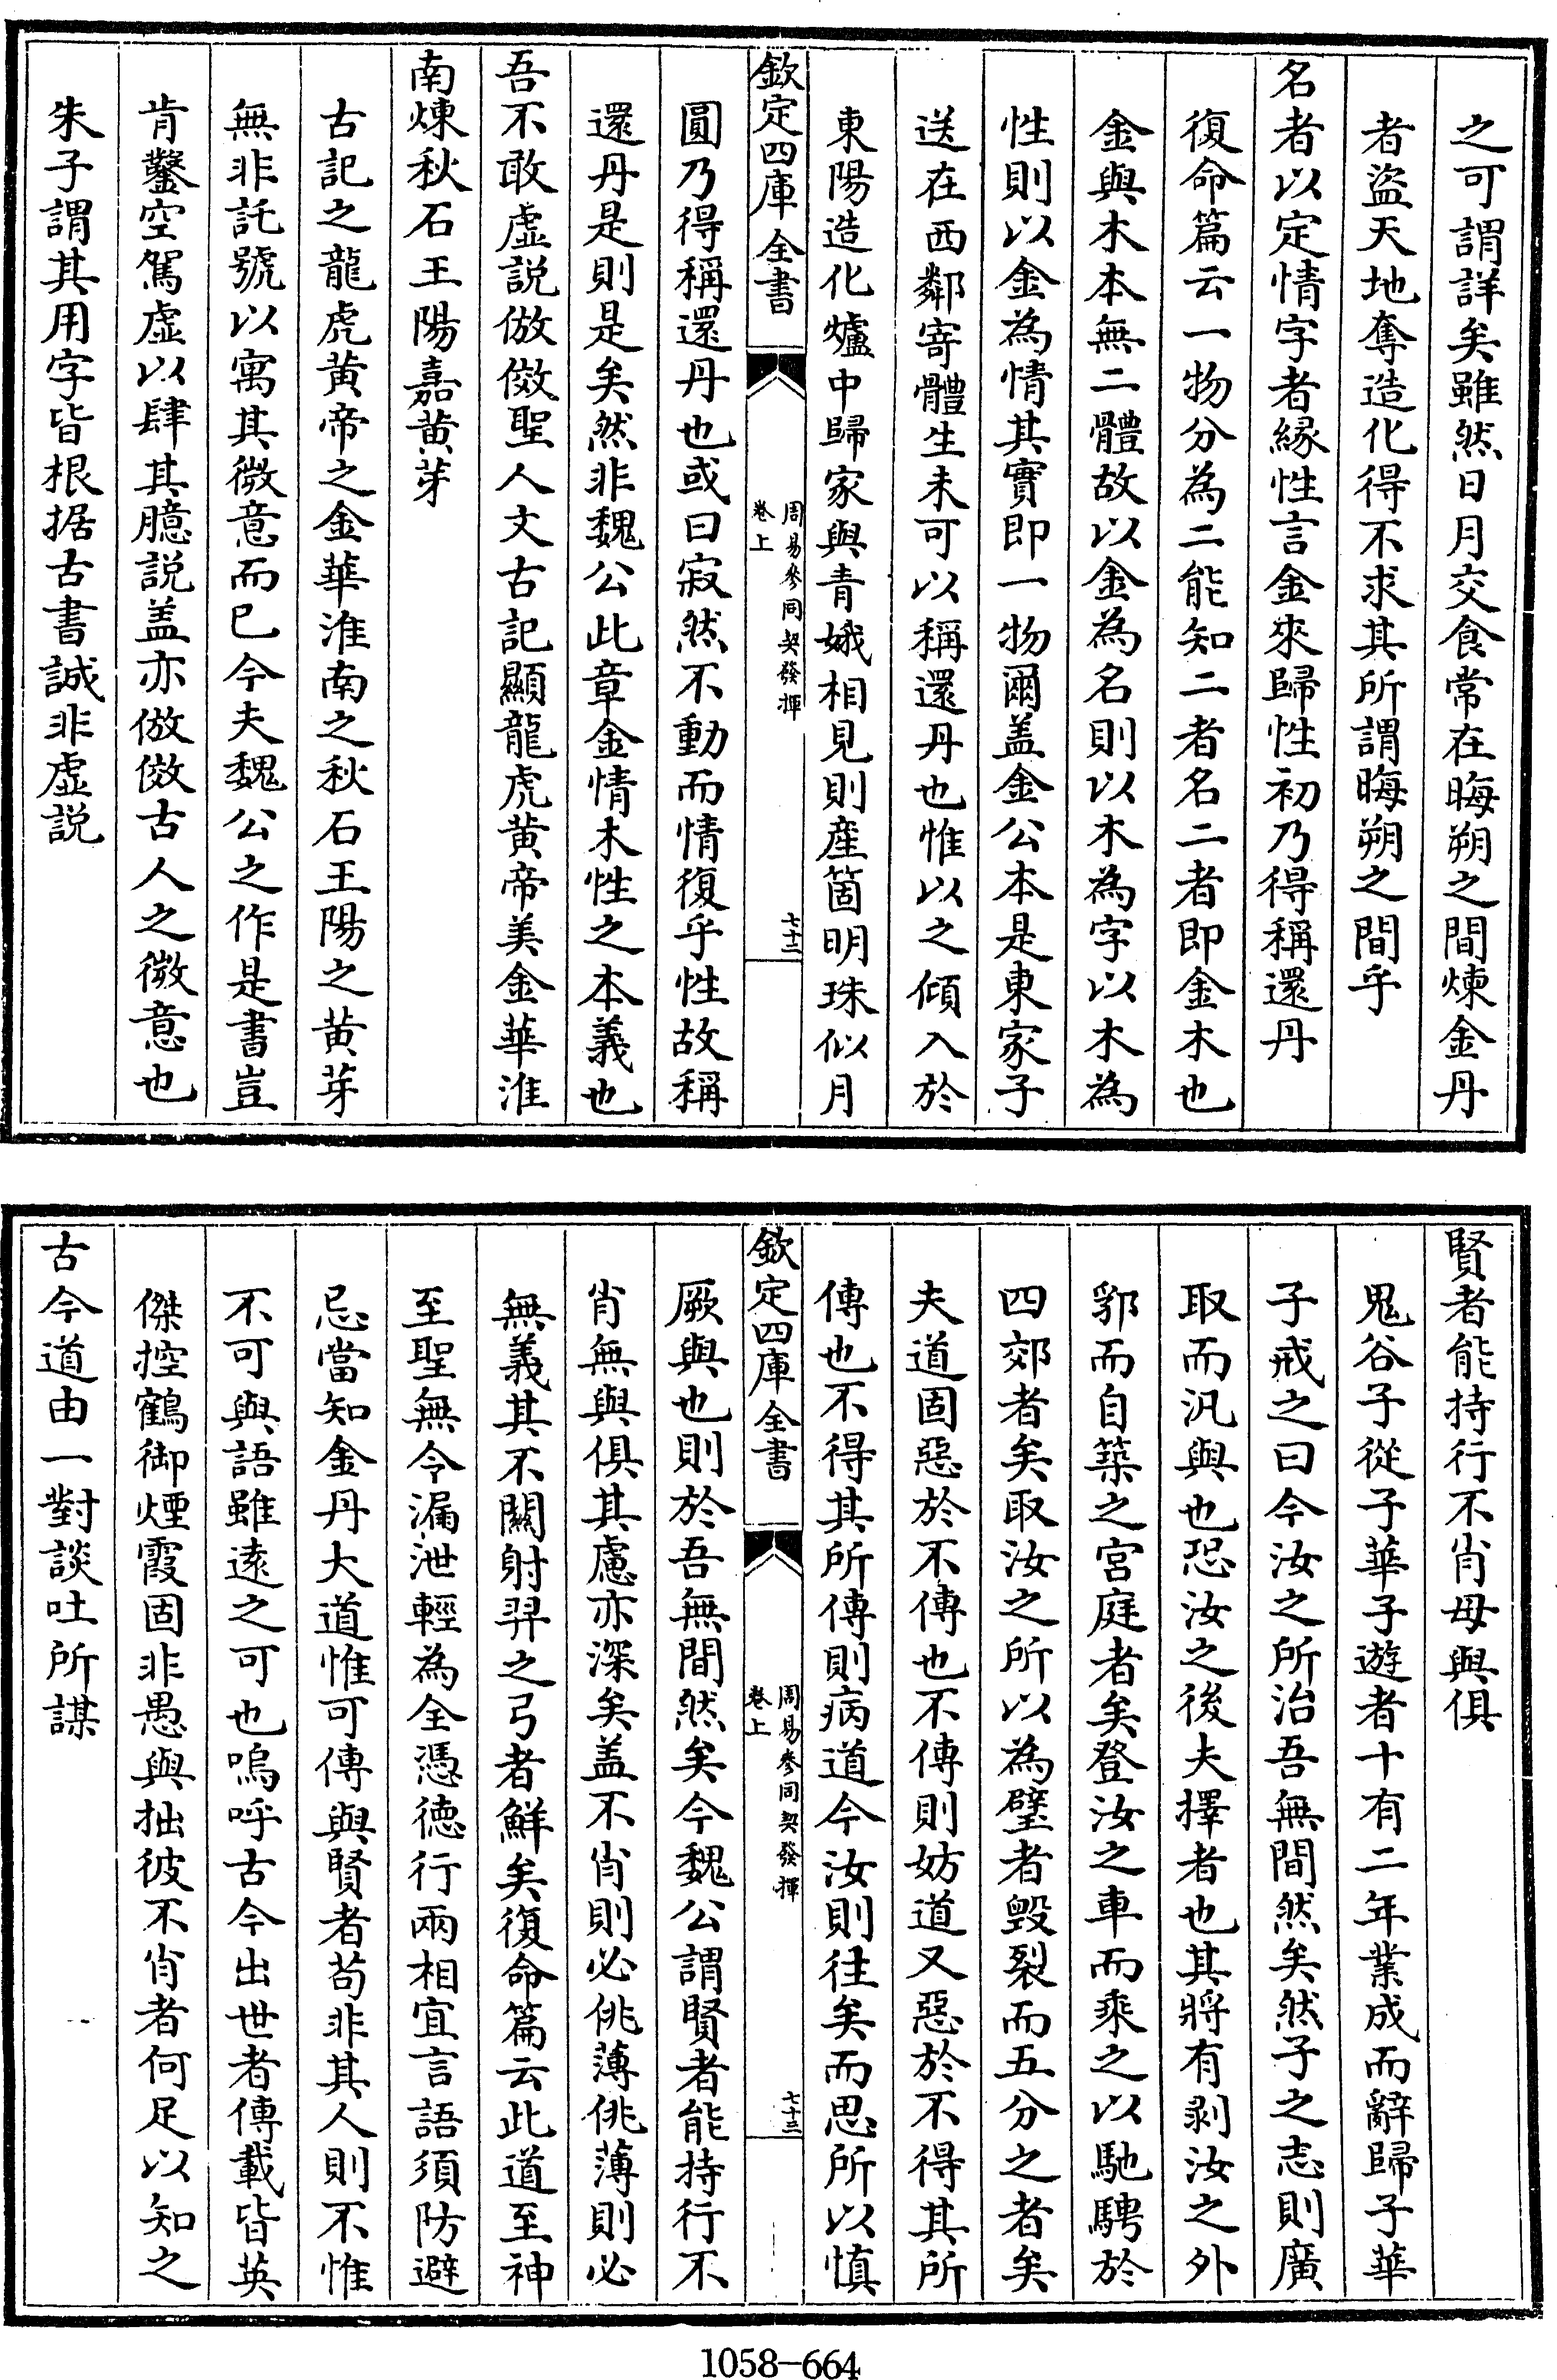 之可謂詳矣雖然日月交食常在晦朔之間煉金丹
者盜天地奪造化得不求其所謂晦朔之間乎
名者以定情字者縁性言金來歸性初乃得稱還丹
復命篇云一物分為二能知二者名二者即金木也
金與木本無二體故以金為名則以木為字以木為
性則以金為情其實即一物爾盖金公本是東家子
送在西鄰寄體生未可以稱還丹也惟以之傾入於
東陽造化爐中歸家與青娥相見則産箇明珠似月
欽定四庫全書
周易參同契發揮
卷上
七十二
圓乃得稱還丹也或曰寂然不動而情復乎性故稱
還丹是則是矣然非魏公此章金情木性之本義也
吾不敢虛説倣傚聖人文古記顯龍虎黄帝美金華淮
南煉秋石王陽嘉黄芽
古記之龍虎黄帝之金華淮南之秋石王陽之黄芽
無非託號以寓其微意而已今夫魏公之作是書豈
肯鑿空駕虛以肆其臆説盖亦倣傚古人之微意也
朱子謂其用字皆根据古書誠非虛説
賢者能持行不肖毋與俱
鬼谷子從子華子遊者十有二年業成而辭歸子華
子戒之曰今汝之所治吾無間然矣然子之志則廣
取而汎與也恐汝之後夫擇者也其將有剥汝之外
郛而自築之宮庭者矣登汝之車而乘之以馳騁於
四郊者矣取汝之所以為璧者毁裂而五分之者矣
夫道固惡於不傳也不傳則妨道又惡於不得其所
傳也不得其所傳則病道今汝則往矣而思所以慎
欽定四庫全書
周易參同契發揮
卷上
七十三
厥與也則於吾無間然矣今魏公謂賢者能持行不
肖無與俱其慮亦深矣盖不肖則必佻薄佻薄則必
無義其不關射羿之弓者鮮矣復命篇云此道至神
至聖無令漏泄輕為全憑德行兩相宜言語須防避
忌當知金丹大道惟可傳與賢者苟非其人則不惟
不可與語雖逺之可也嗚呼古今出世者傳載皆英
傑控鶴御煙霞固非愚與拙彼不肖者何足以知之
古今道由一對談吐所謀
1058-664